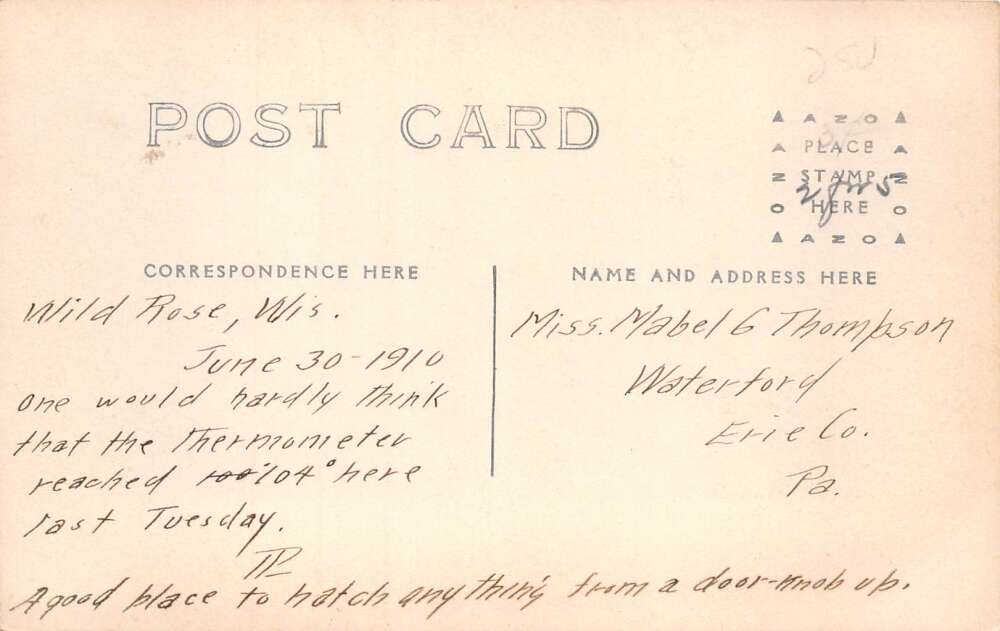 POST CARD
▲ A Z O ▲
A PLACE A
Z STAMP Z
O HERE O
▲ A Z O ▲
CORRESPONDENCE HERE
Wild Rose, Wis.
June 30-1910
One would hardly think
that the Thermometer
reached 100° 104° here
last Tuesday.
A good place to hatch anything from a door-knob up.
NAME AND ADDRESS HERE
Miss. Mabel G Thompson
Waterford
Erie Co.
Pa.